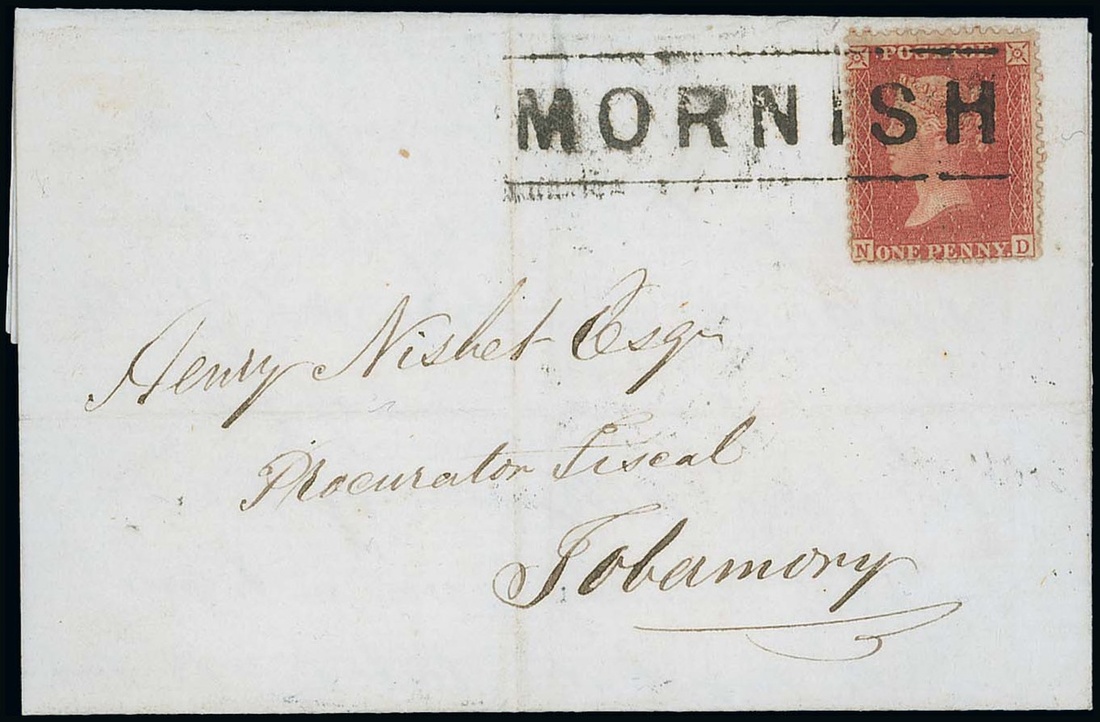 MORNISH
POSTAGE
N ONE PENNY. D
Henry Nisbet Esqr
Procurator Fiscal
Tobamory